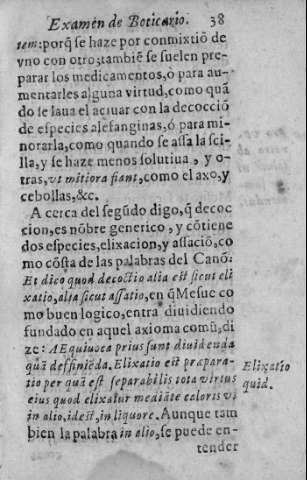 Examen de Boticario. 38
tem: porq̃ se haze por conmixtiõ de
vno con otro; tambiẽ se suelen pre-
parar los medicamentos, ò para au-
mentarles alguna virtud, como quã
do se laua el açiuar con la decocciõ
de especies alefanginas, ò para mi-
norarla, como quando se assa la sci-
lla, y se haze menos solutiua, y o-
tras, vt mitiora fiant, como el axo, y
cebollas, &c.
A cerca del segũdo digo, q̃ decoc
cion, es nõbre generico, y cõtiene
dos especies, elixacion, y assaciõ, co
mo cõsta de las palabras del Canõ:
Et dico quod decoctio alia est sicut eli
xatio, alia sicut assatio, en q̃ Mesue co
mo buen logico, entra diuidiendo
fundado en aquel axioma comũ, di
ze: AEquiuoca prius sunt diuidenda
quã deffinieda. Elixatio est prapara-
tio per quã est separabilis tota virtus
eius quod elixatur mediãte caloris vi
in alio, idest, in liquore. Aunque tam
bien la palabra in alio, se puede en-
tender
Elixatio
quid.